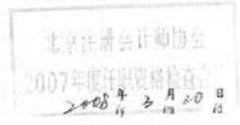 北京注册会计师协会
2007年度任职资格检查合
2008年3月20日